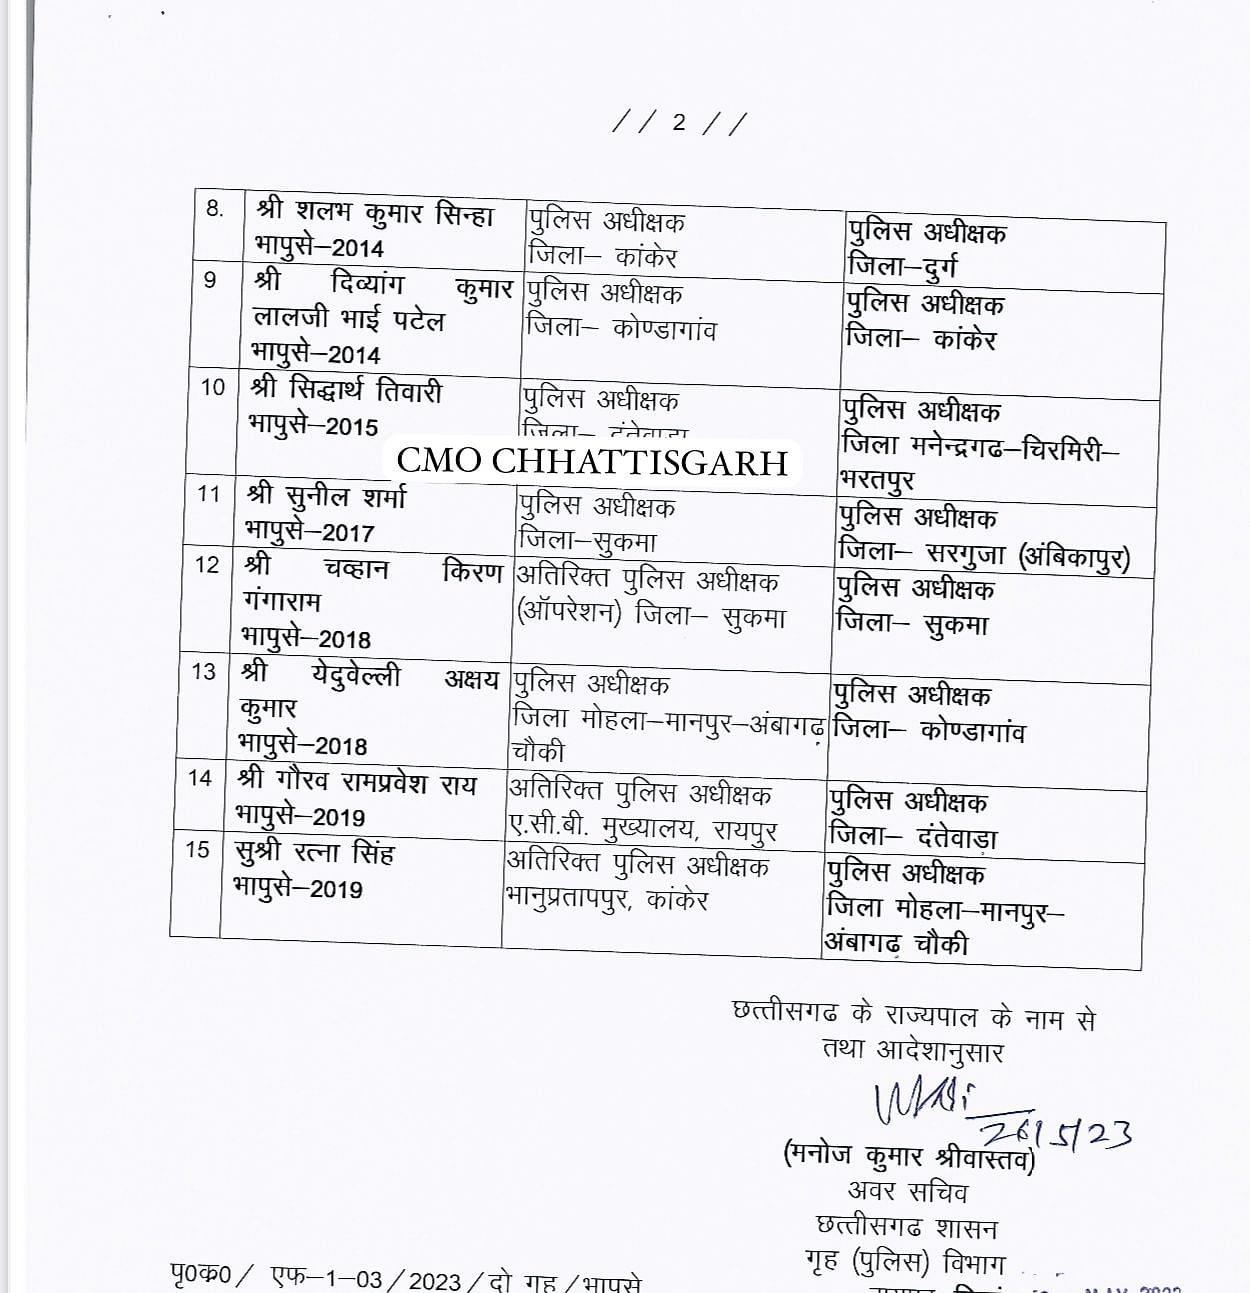 // 2 //
8.
श्री शलभ कुमार सिन्हा
भापुसे–2014
पुलिस अधीक्षक
जिला– कांकेर
पुलिस अधीक्षक
जिला–दुर्ग
9
श्री दिव्यांग कुमार
लालजी भाई पटेल
भापुसे–2014
पुलिस अधीक्षक
जिला– कोण्डागांव
पुलिस अधीक्षक
जिला– कांकेर
10
श्री सिद्धार्थ तिवारी
भापुसे–2015
पुलिस अधीक्षक
जिला– दंतेवाड़ा
पुलिस अधीक्षक
जिला मनेन्द्रगढ–चिरमिरी–
भरतपुर
CMO CHHATTISGARH
11
श्री सुनील शर्मा
भापुसे–2017
पुलिस अधीक्षक
जिला–सुकमा
पुलिस अधीक्षक
जिला– सरगुजा (अंबिकापुर)
12
श्री चव्हान किरण
गंगाराम
भापुसे–2018
अतिरिक्त पुलिस अधीक्षक
(ऑपरेशन) जिला– सुकमा
पुलिस अधीक्षक
जिला– सुकमा
13
श्री येदुवेल्ली अक्षय
कुमार
भापुसे–2018
पुलिस अधीक्षक
जिला मोहला–मानपुर–अंबागढ़
चौकी
पुलिस अधीक्षक
जिला– कोण्डागांव
14
श्री गौरव रामप्रवेश राय
भापुसे–2019
अतिरिक्त पुलिस अधीक्षक
ए.सी.बी. मुख्यालय, रायपुर
पुलिस अधीक्षक
जिला– दंतेवाड़ा
15
सुश्री रत्ना सिंह
भापुसे–2019
अतिरिक्त पुलिस अधीक्षक
भानुप्रतापपुर, कांकेर
पुलिस अधीक्षक
जिला मोहला–मानपुर–
अंबागढ़ चौकी
छत्तीसगढ के राज्यपाल के नाम से
तथा आदेशानुसार
26/5/23
(मनोज कुमार श्रीवास्तव)
अवर सचिव
छत्तीसगढ शासन
गृह (पुलिस) विभाग
पृ0क0/ एफ–1–03/2023/दो गृह/भापुसे